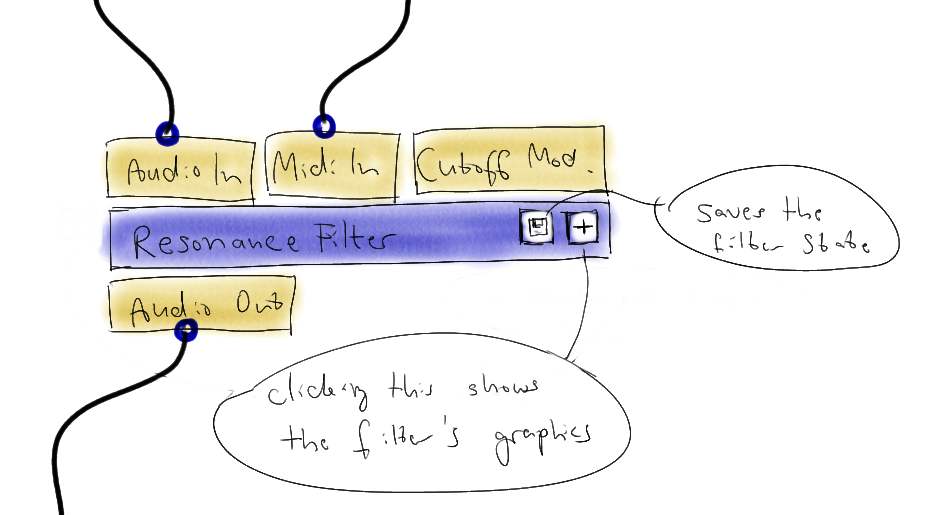 Audio In
Midi In
Cutoff Mod.
Resonance Filter
+
saves the
filter state
Audio Out
clicking this shows
the filter's graphics